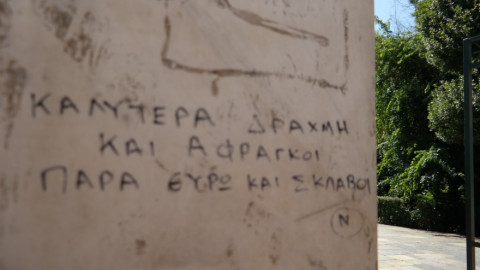 ΚΑΛΥΤΕΡΑ ΔΡΑΧΜΗ
ΚΑΙ ΑΦΡΑΓΚΟΙ
ΠΑΡΑ ΕΥΡΩ ΚΑΙ ΣΚΛΑΒΟΙ
N